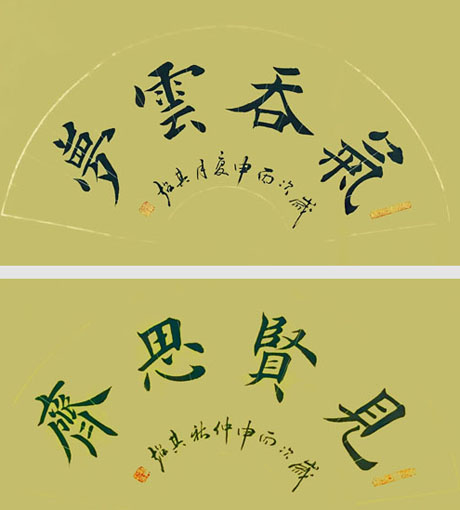 氣吞雲夢
歲次丙申夏月其超
見賢思齊
歲次丙申仲秋其超